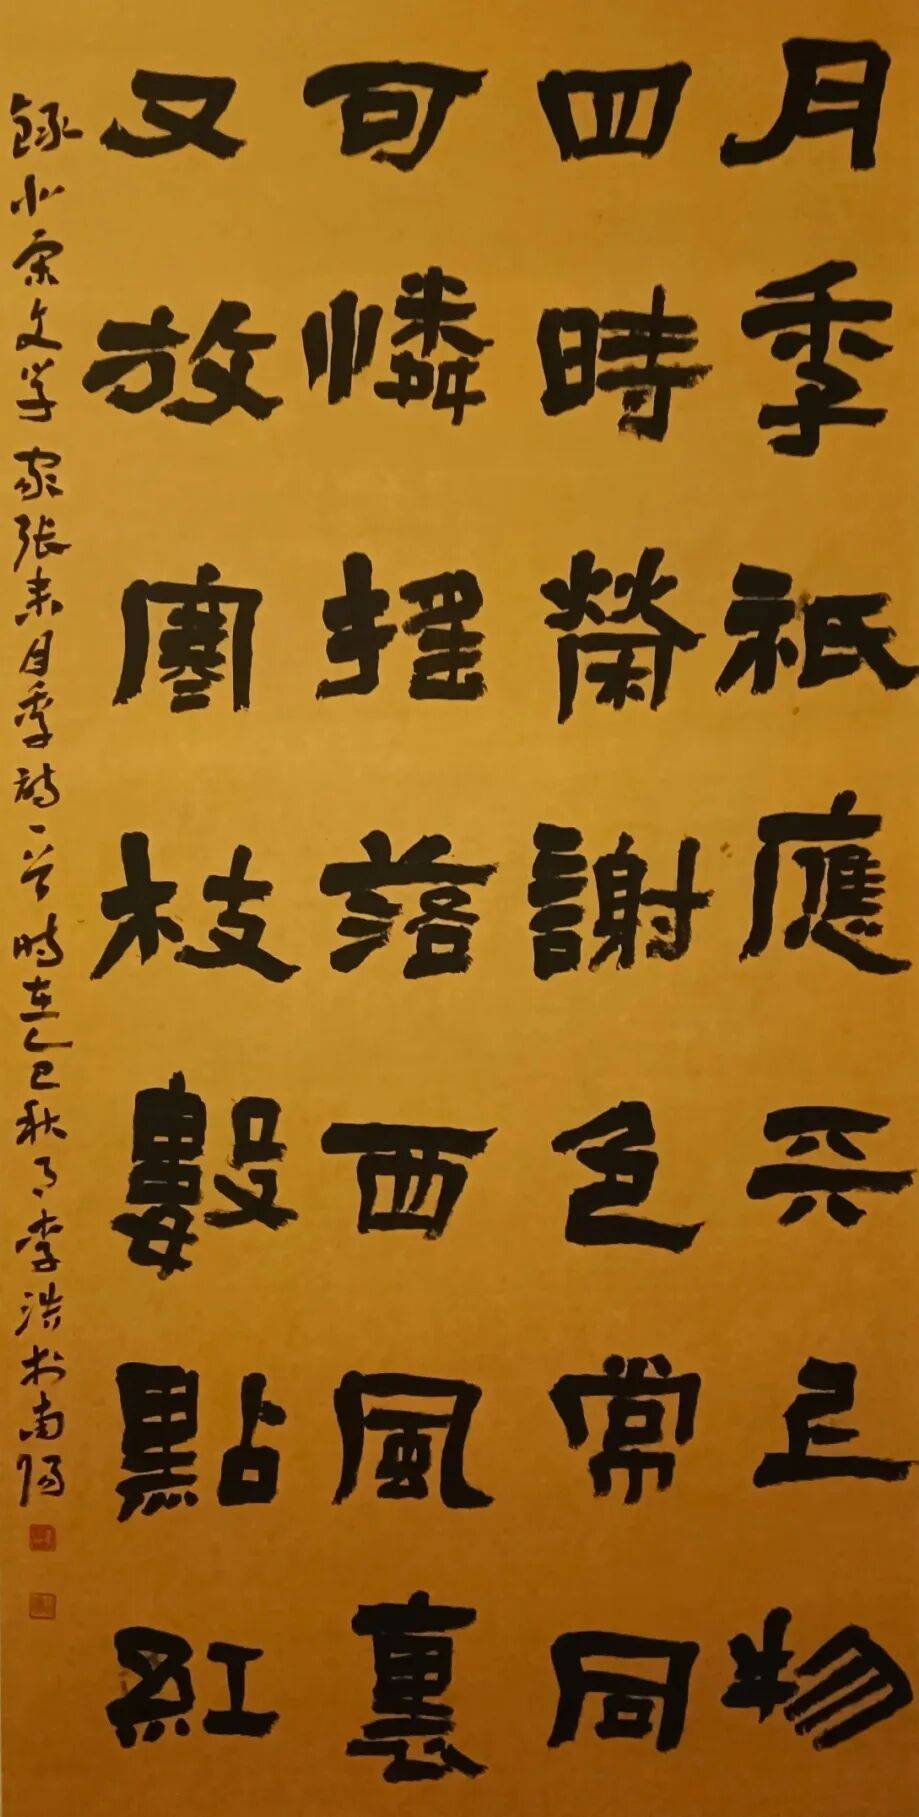 月季祇應天上物
四時榮謝色常同
可憐摇落西風裏
又放寒枝數點紅
録北宋文学家張耒月季詩一首時在乙巳秋月李浩於南陽